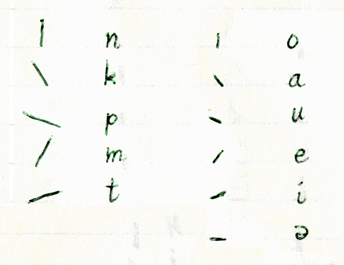 | n ı o
\ k \ a
\ p \ u
/ m / e
⟋ t ⟋ i
– ə